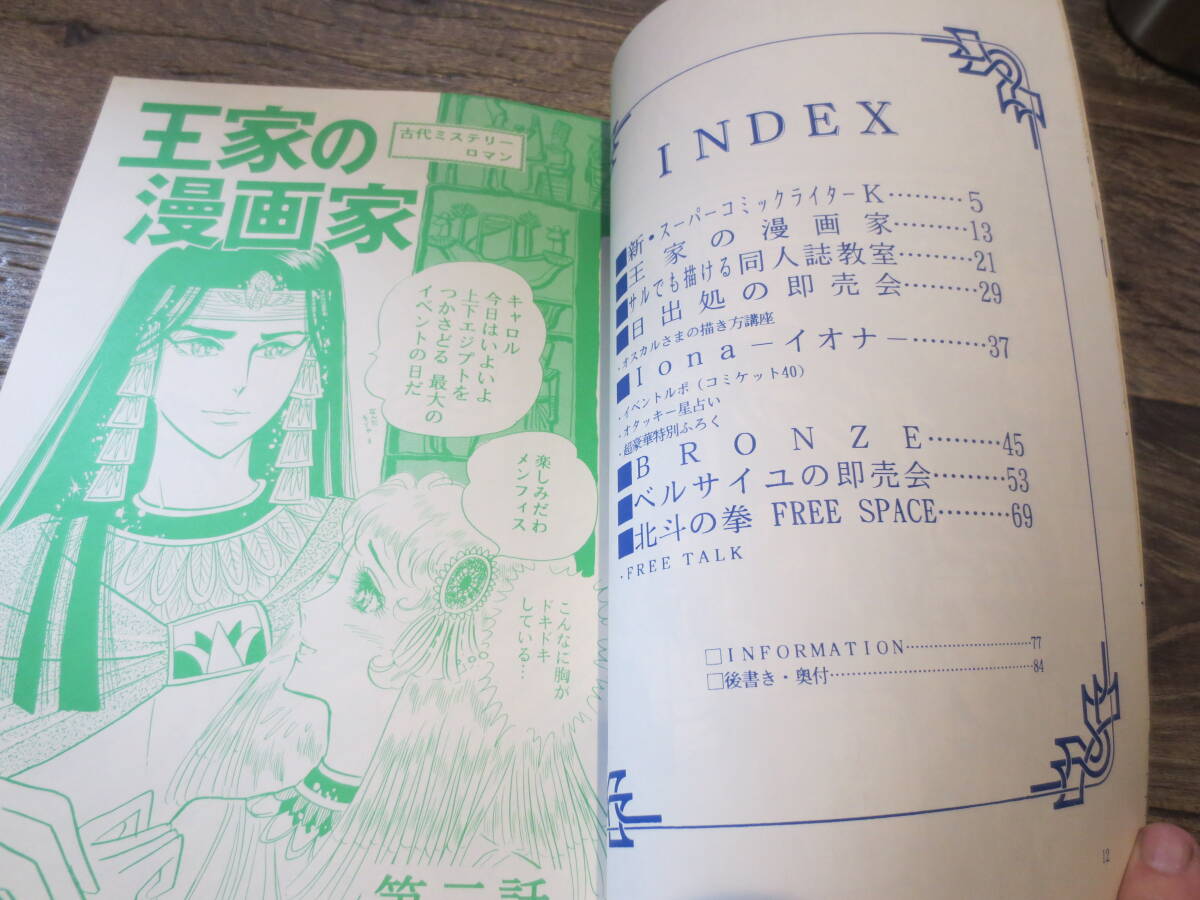 王家の
漫画家
古代ミステリー
ロマン
キャロル
今日はいよいよ
上下エジプトを
つかさどる 最大の
イベントの日だ
楽しみだわ
メンフィス
こんなに胸が
ドキドキ
している…
INDEX
■新・スーパーコミックライターK………5
■王家の漫画家………13
■サルでも描ける同人誌教室………21
■日出処の即売会………29
・オスカルさまの描き方講座
■Iona－イオナ－………37
・イベントルポ（コミケット40）
・オタッキー星占い
・超豪華特別ふろく
■BRONZE………45
■ベルサイユの即売会………53
■北斗の拳 FREE SPACE………69
・FREE TALK
□INFORMATION………77
□後書き・奥付………84
12